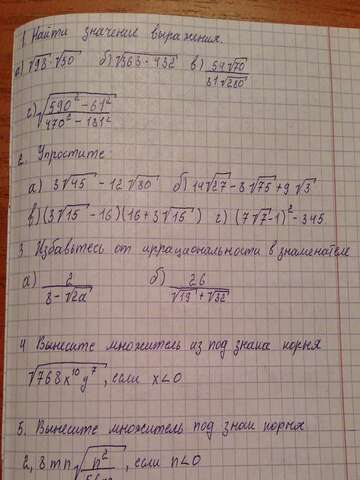 1. Найти значение выражения.
а) √98 · √50 б) √363 · 432 в) 54√70 / 31√280
г) √(590² - 61² / 470² - 181²)
2. Упростите:
а) 3√45 - 12√80 б) 14√27 - 8√75 + 9√3
в) (3√15 - 16)(16 + 3√15) г) (7√7 - 1)² - 345
3. Избавьтесь от иррациональности в знаменателе
а) 2 / 8 - √2а б) 26 / √19 + √32
4 Вынесите множитель из под знака корня
√768x¹⁰y⁷, если x<0
5. Вынесите множитель под знак корня
2,8mn √n², если n<0